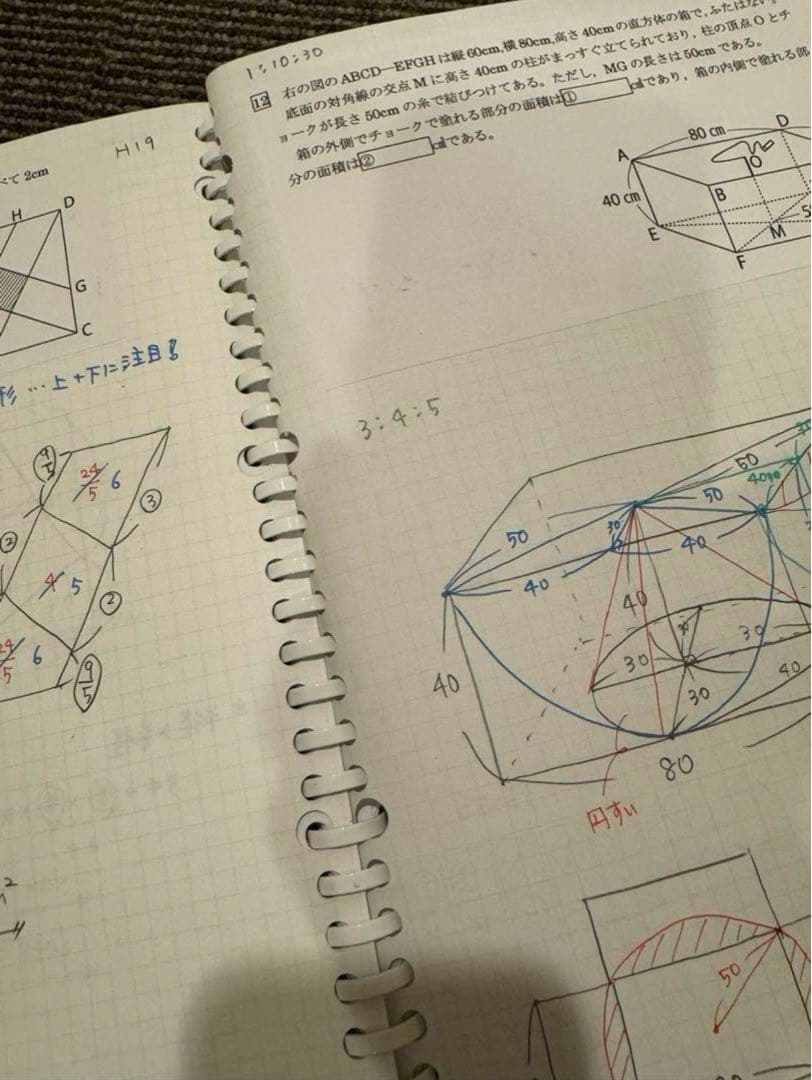 べて 2cm
H19
H
D
G
C
形 … 上+下に注目!
9/5
24/5 6
③
②
4 5
②
24/5 6
9/5
1:10:30
12 右の図の ABCD―EFGH は縦 60cm, 横 80cm, 高さ 40cm の直方体の箱で, ふたはない。
底面の対角線の交点 M に高さ 40cm の柱がまっすぐ立てられており, 柱の頂点 O とチ
ョークが長さ 50cm の糸で結びつけてある。ただし, MG の長さは 50cm である。
箱の外側でチョークで塗れる部分の面積は ① ㎠であり, 箱の内側で塗れる部
分の面積は ② ㎠である。
80 cm
D
A
O
B
40 cm
E
M
F
3:4:5
50
50
50
40
30
30
40
40
40
30
30
30
30
40
40
80
円すい
50